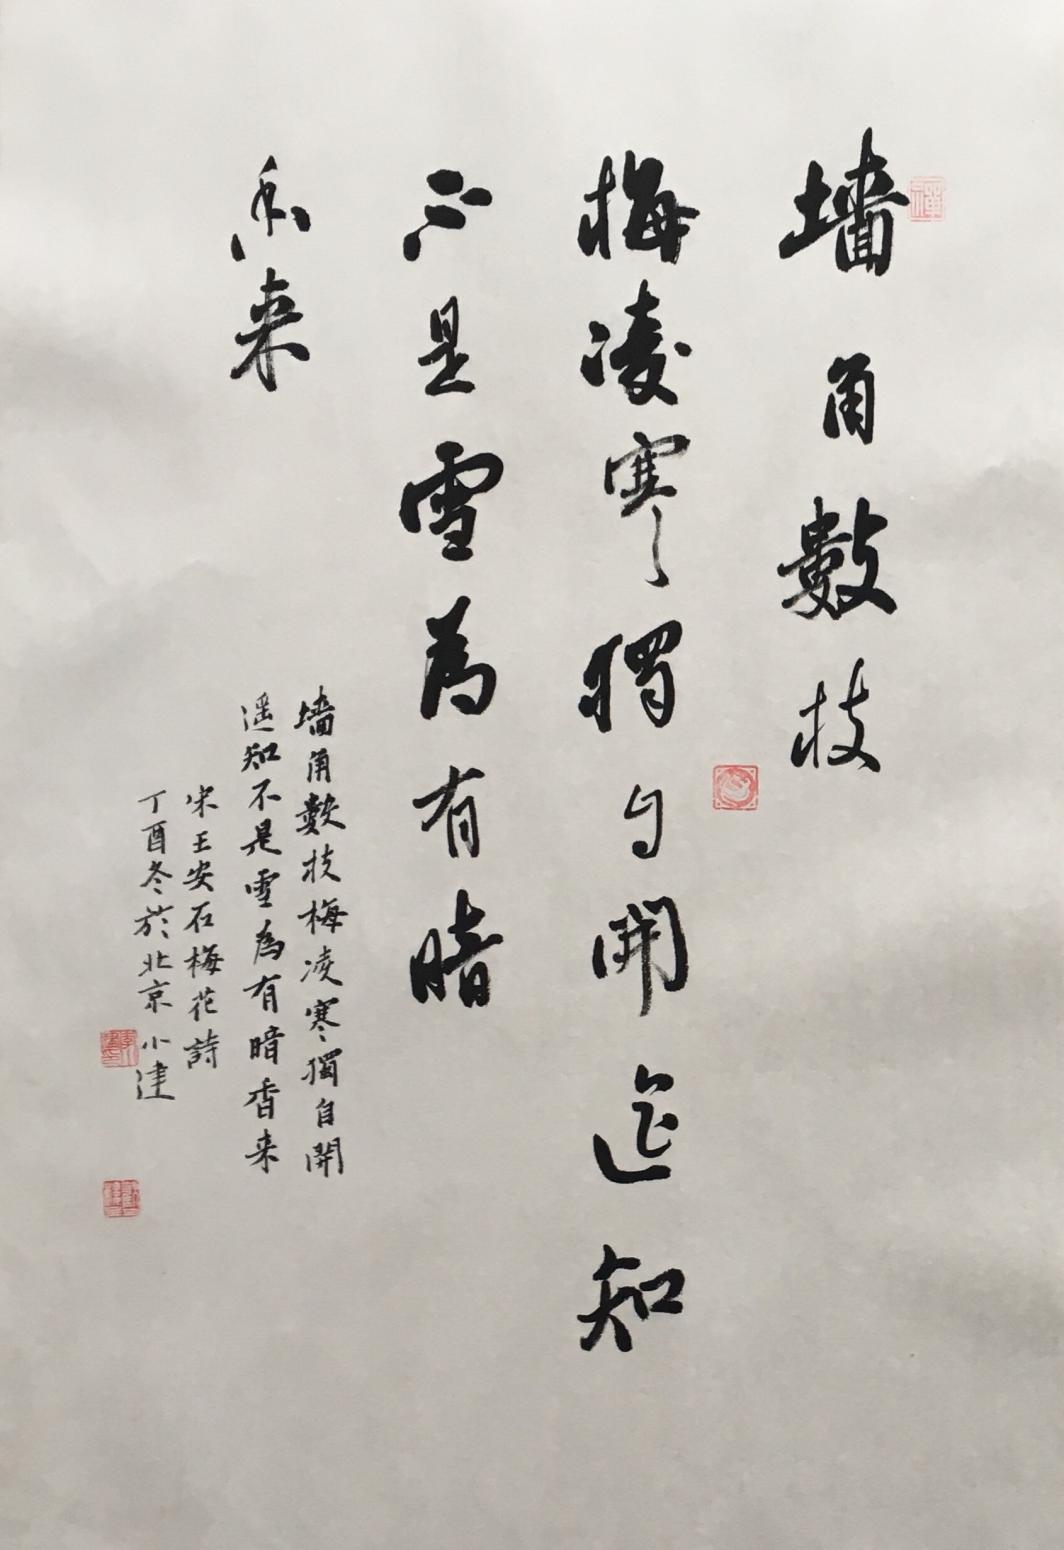 墙角數枝
梅凌寒獨自開遥知
不是雪為有暗
香来
墙角數枝梅凌寒獨自開
遥知不是雪為有暗香来
宋王安石梅花詩
丁酉冬於北京小建